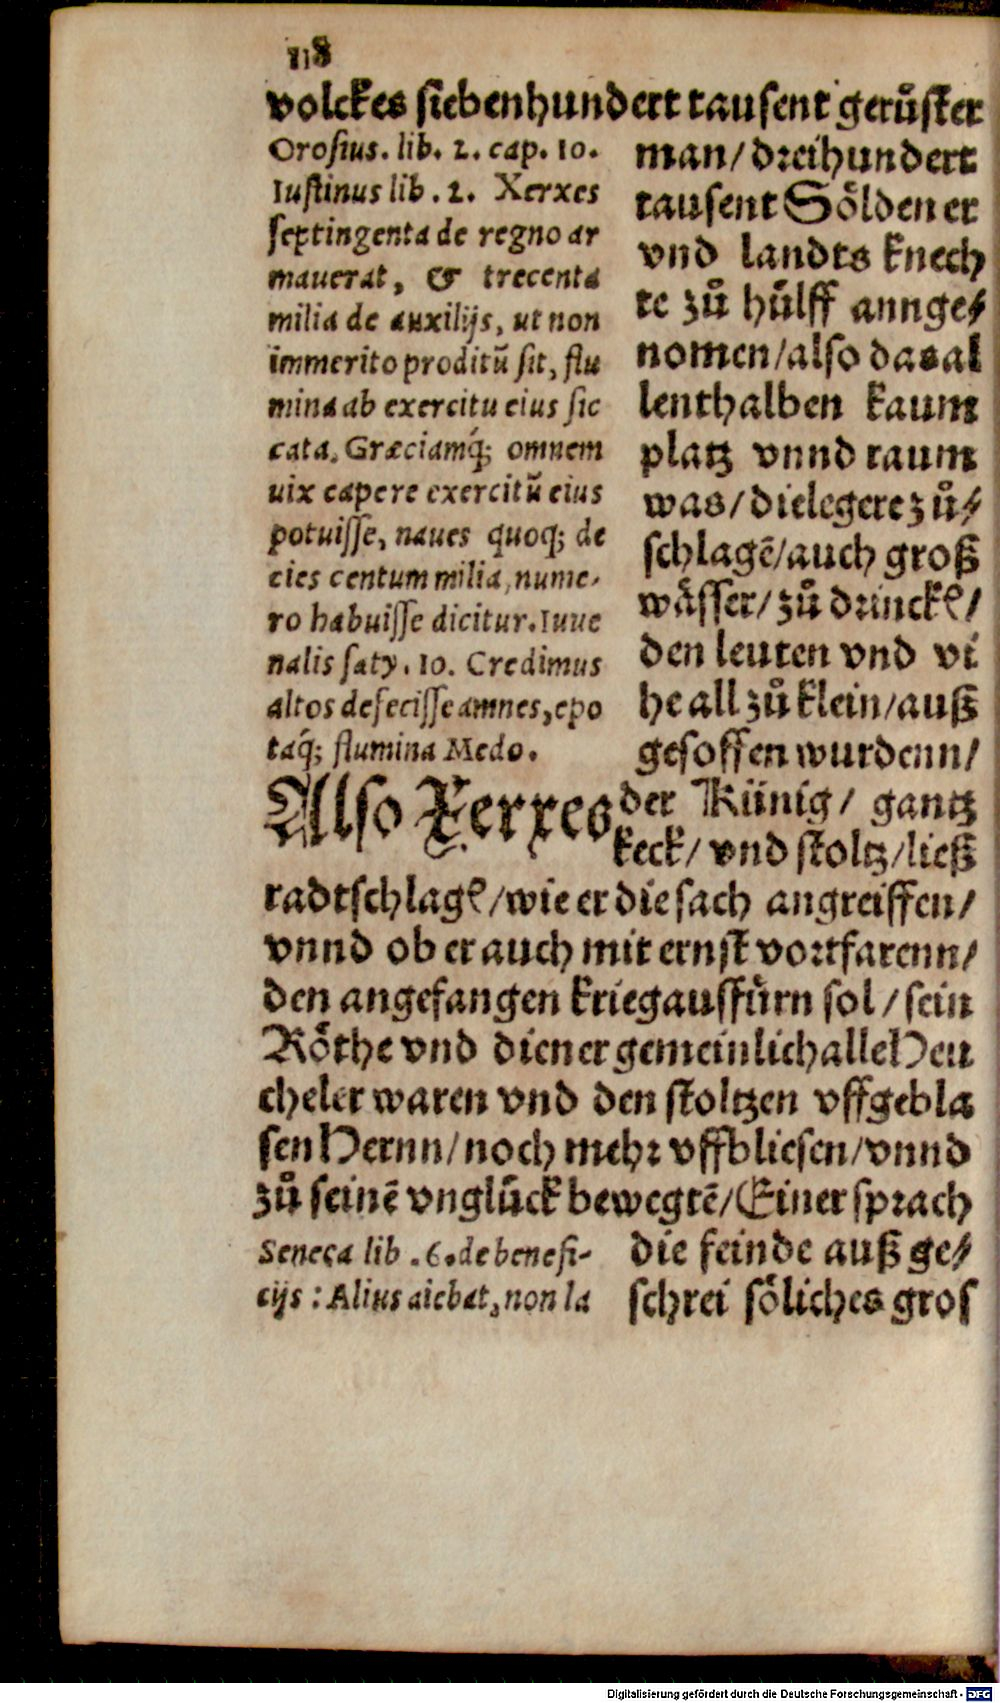 118
volckes siebenhundert tausent gerůster
man/ dreihundert
tausent Söldener
vnd landts knech
te zů hůlff annge/
nomen/also das al
lenthalben kaum
platz vnnd raum
was/ die legere zů/
schlagē/auch groß
wåsser/ zů drincken/
den leuten vnd vi
he all zů klein/auß
gesoffen wurdenn/
Orosius. lib. 2. cap. 10.
Iustinus lib. 2. Xerxes
septingenta de regno ar
mauerat, & trecenta
milia de auxilijs, ut non
immerito proditū sit, flu
mina ab exercitu eius sic
cata. Græciamq́; omnem
uix capere exercitū eius
potuisse, naues quoq; de
cies centum milia, nume-
ro habuisse dicitur. Iuue
nalis saty. 10. Credimus
altos defecisse amnes, epo
taq́; flumina Medo.
Also Xerxes der Künig/ gantz
keck/ vnd stoltz/ließ
radtschlagen/wie er die sach angreiffen/
vnnd ob er auch mit ernst vortfarenn/
den angefangen krieg ausfůrn sol/ sein
Röthe vnd diener gemeinlich alle Heu
cheler waren vnd den stoltzen vffgebla
sen Hernn/noch mehr vffbliesen/vnnd
zů seinē vnglůck bewegtē/Einer sprach
die feinde auß ge/
schrei söliches gros
Seneca lib. 6. de benefi-
cijs: Alius aiebat, non la
Digitalisierung gefördert durch die Deutsche Forschungsgemeinschaft - DFG